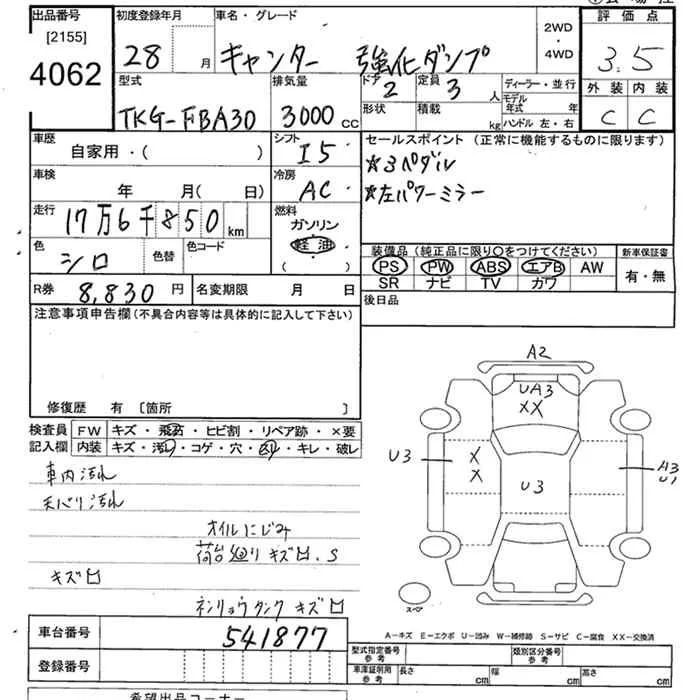 出品番号
[2155]
4062
初度登録年月
28 月
車名・グレード
キャンター 強化ダンプ
2WD
・
4WD
評価点
3.5
外装 内装
C C
型式
TKG-FBA30
排気量
3000 CC
ドア
2
定員
3 人
ディーラー・並行
モデル年式 年
形状
積載 kg
ハンドル 左・右
車歴
自家用・( )
シフト
I5
セールスポイント (正常に機能するものに限ります)
☆3ペダル
☆左パワーミラー
車検
年 月( 日)
冷房
AC
走行
17万6千850 km
燃料
ガソリン
軽油
( )
色
シロ
色替
色コード
装備品 (純正品に限り○をつけてください)
PS PW ABS エアB AW
SR ナビ TV カワ
新車保証書
有・無
R券 8,830 円
名変期限 月 日
後日品
注意事項申告欄 (不具合内容等は具体的に記入して下さい)
修復歴 有 [箇所 ]
検査員記入欄
FW キズ・飛石・ヒビ割・リペア跡・×要
内装 キズ・汚れ・コゲ・穴・凹・キレ・破レ
車内汚れ
天バリ汚れ
オイルにじみ
荷台廻りキズ凹.S
キズ凹
ネンリョウタンクキズ凹
A2
UA3
XX
U3
X
X
U3
A3
U1
スペア
A-キズ E-エクボ U-凹み W-補修跡 S-サビ C-腐食 XX-交換済
車台番号 541877
登録番号
型式指定番号
参考
類別区分番号
参考
車庫証明用
参考
長さ cm
幅 cm
高さ cm
希望出品コーナー